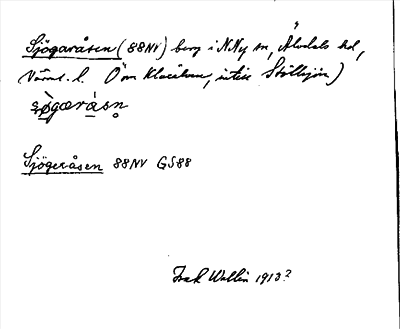 Sjögaråsen (88NV) berg i N. Ny sn, Älvdals hd,
Värml. l. O om Klarälven, intill
søgæråsn
Sjögeråsen 88NV GS88
Wallin 1913?